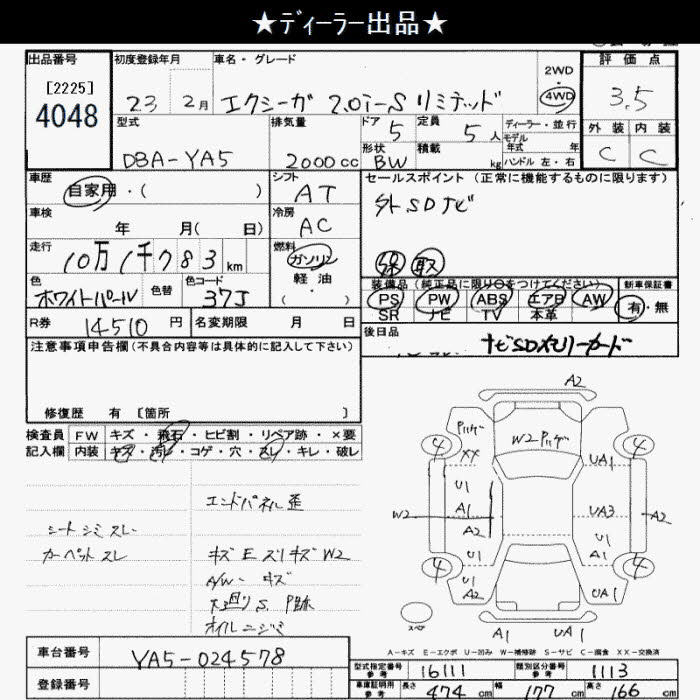 ★ディーラー出品★
出品番号
[2225]
4048
初度登録年月
23 2月
車名・グレード
エクシーガ 2.0i-S リミテッド
2WD
・
4WD
評価点
3.5
外装 内装
C C
型式
DBA-YA5
排気量
2000cc
ドア
5
定員
5人
形状
BW
積載
kg
ディーラー・並行
モデル
年式 年
ハンドル 左・右
車歴
自家用・( )
シフト
AT
セールスポイント (正常に機能するものに限ります)
外SDナビ
保 取
車検
年 月( 日)
冷房
AC
走行
10万1千783km
燃料
ガソリン
軽油
( )
色
ホワイトパール
色替
色コード
37J
装備品 (純正品に限り○をつけてください)
PS PW ABS エアB AW
SR ナビ TV 本革
新車保証書
有・無
R券
14510円
名変期限 月 日
後日品
ナビSDメモリーカード
注意事項申告欄(不具合内容等は具体的に記入して下さい)
修復歴 有 [箇所 ]
検査員
記入欄
FW キズ・飛石・ヒビ割・リペア跡・×要
内装 キズ・汚レ・コゲ・穴・スレ・キレ・破レ
エンドパネル歪
シートシミスレ
カーペットスレ
キズ E ズリキズ W2
A/W-キズ
下廻りS P跡
オイルニジミ
A2
W2
XX
4
4
UA1
U1
A1
A2
W2
UA3
A2
U1
U1
A1
4
4
U1
A2
UA1
A1
UA1
スペア
A-キズ E-エクボ U-凹み W-補修跡 S-サビ C-腐食 XX-交換済
車台番号
YA5-024578
登録番号
型式指定番号
参考
16111
類別区分番号
参考
1113
車庫証明用
参考
長さ 474 cm
幅 177 cm
高さ 166 cm